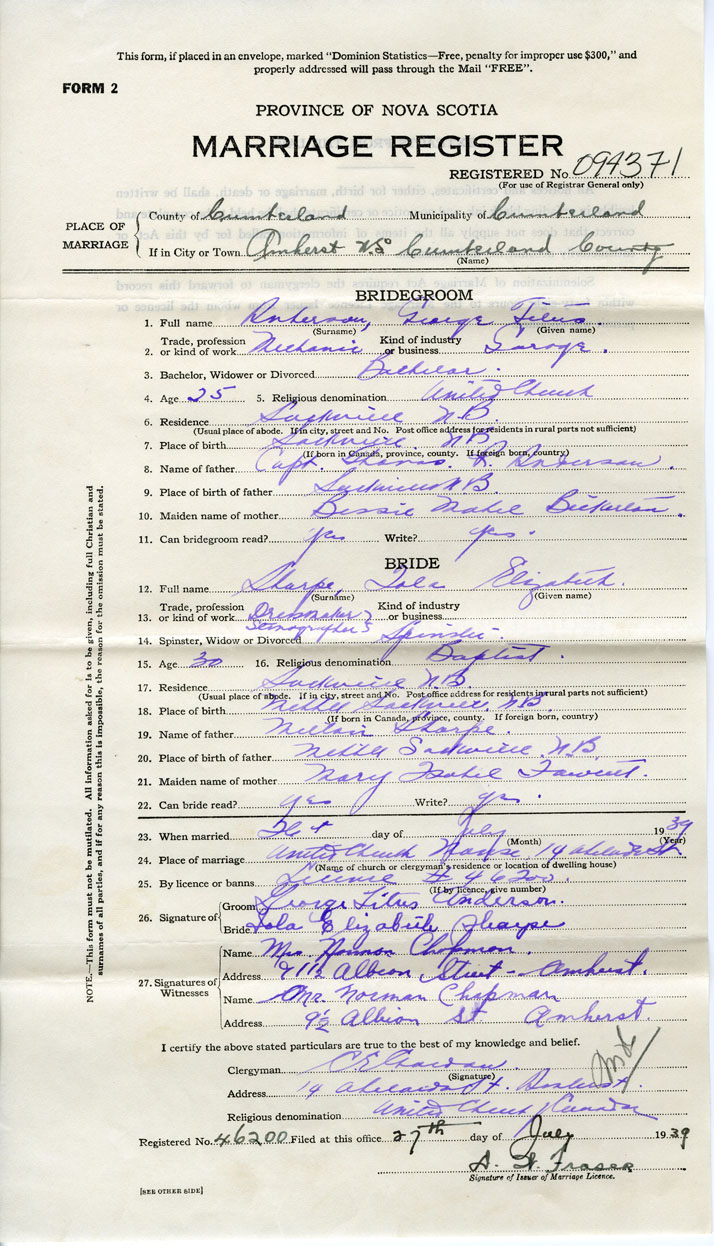 This form, if placed in an envelope, marked "Dominion Statistics—Free, penalty for improper use $300," and
properly addressed will pass through the Mail "FREE".
FORM 2
PROVINCE OF NOVA SCOTIA
MARRIAGE REGISTER
REGISTERED No. 094371
(For use of Registrar General only)
PLACE OF MARRIAGE
County of Cumberland Municipality of Cumberland
If in City or Town Amherst N.S. Cumberland County
(Name)
BRIDEGROOM
1. Full name Anderson, George Titus
(Surname) (Given name)
2. Trade, profession or kind of work Mechanic Kind of industry or business Garage.
3. Bachelor, Widower or Divorced Bachelor.
4. Age 25 5. Religious denomination United Church
6. Residence Sackville N.B.
(Usual place of abode. If in city, street and No. Post office address for residents in rural parts not sufficient)
7. Place of birth Sackville N.B.
(If born in Canada, province, county. If foreign born, country)
8. Name of father Capt. Thomas R. Anderson.
9. Place of birth of father Sackville N.B.
10. Maiden name of mother Bessie Mabel Bickerton.
11. Can bridegroom read? yes Write? yes.
BRIDE
12. Full name Sharpe, Lola Elizabeth.
(Surname) (Given name)
13. Trade, profession or kind of work Dressmaker & Stenographer Kind of industry or business
14. Spinster, Widow or Divorced Spinster.
15. Age 30 16. Religious denomination Baptist.
17. Residence Sackville N.B.
(Usual place of abode. If in city, street and No. Post office address for residents in rural parts not sufficient)
18. Place of birth Middle Sackville, N.B.
(If born in Canada, province, county. If foreign born, country)
19. Name of father Milton Sharpe.
20. Place of birth of father Middle Sackville N.B.
21. Maiden name of mother Mary Isabel Fawcett.
22. Can bride read? yes Write? yes.
23. When married day of July 1939
(Month) (Year)
24. Place of marriage United Church Manse, 14
(Name of church or clergyman's residence or location of dwelling house)
25. By licence or banns License # 46200.
(If by licence, give number)
26. Signature of
Groom George Titus Anderson.
Bride Lola Elizabeth Sharpe
27. Signatures of Witnesses
Name Mrs. Norman Chapman.
Address 9 1/2 Albion Street - Amherst.
Name Mr. Norman Chapman
Address 9 1/2 Albion St Amherst.
I certify the above stated particulars are true to the best of my knowledge and belief.
Clergyman
(Signature)
Address 14 St. Amherst.
Religious denomination United Church of Canada
Registered No. 46200 Filed at this office 27th day of July 1939
A. W. Fraser
Signature of Issuer of Marriage Licence.
[SEE OTHER SIDE]
NOTE.—This form must not be mutilated. All information asked for is to be given, including full Christian and
surnames of all parties, and if for any reason this is impossible, the reason for the omission must be stated.